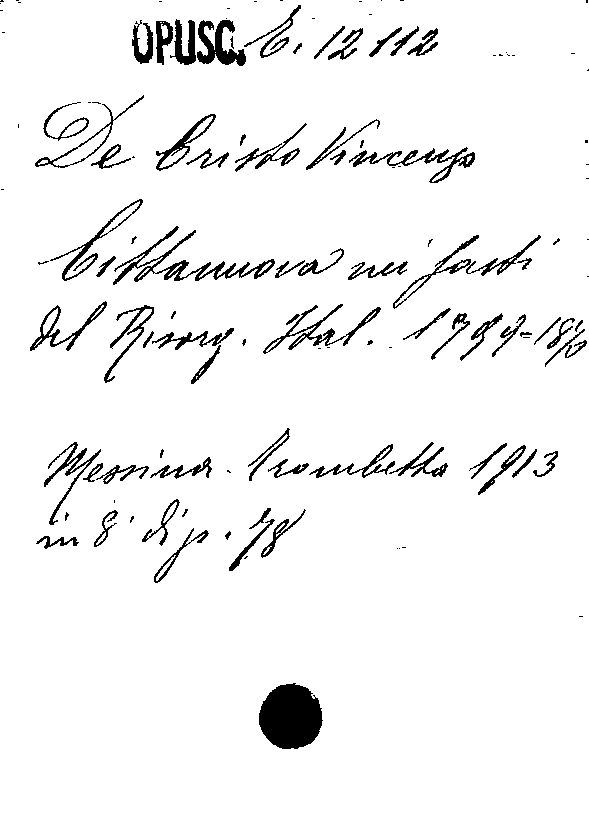 OPUSC. E. 12112
De Cristo Vincenzo
Cittanuova nei fasti
del Risorg. Ital. 1799-1870
Messina. Trombetta 1913
in 8° di p. 78